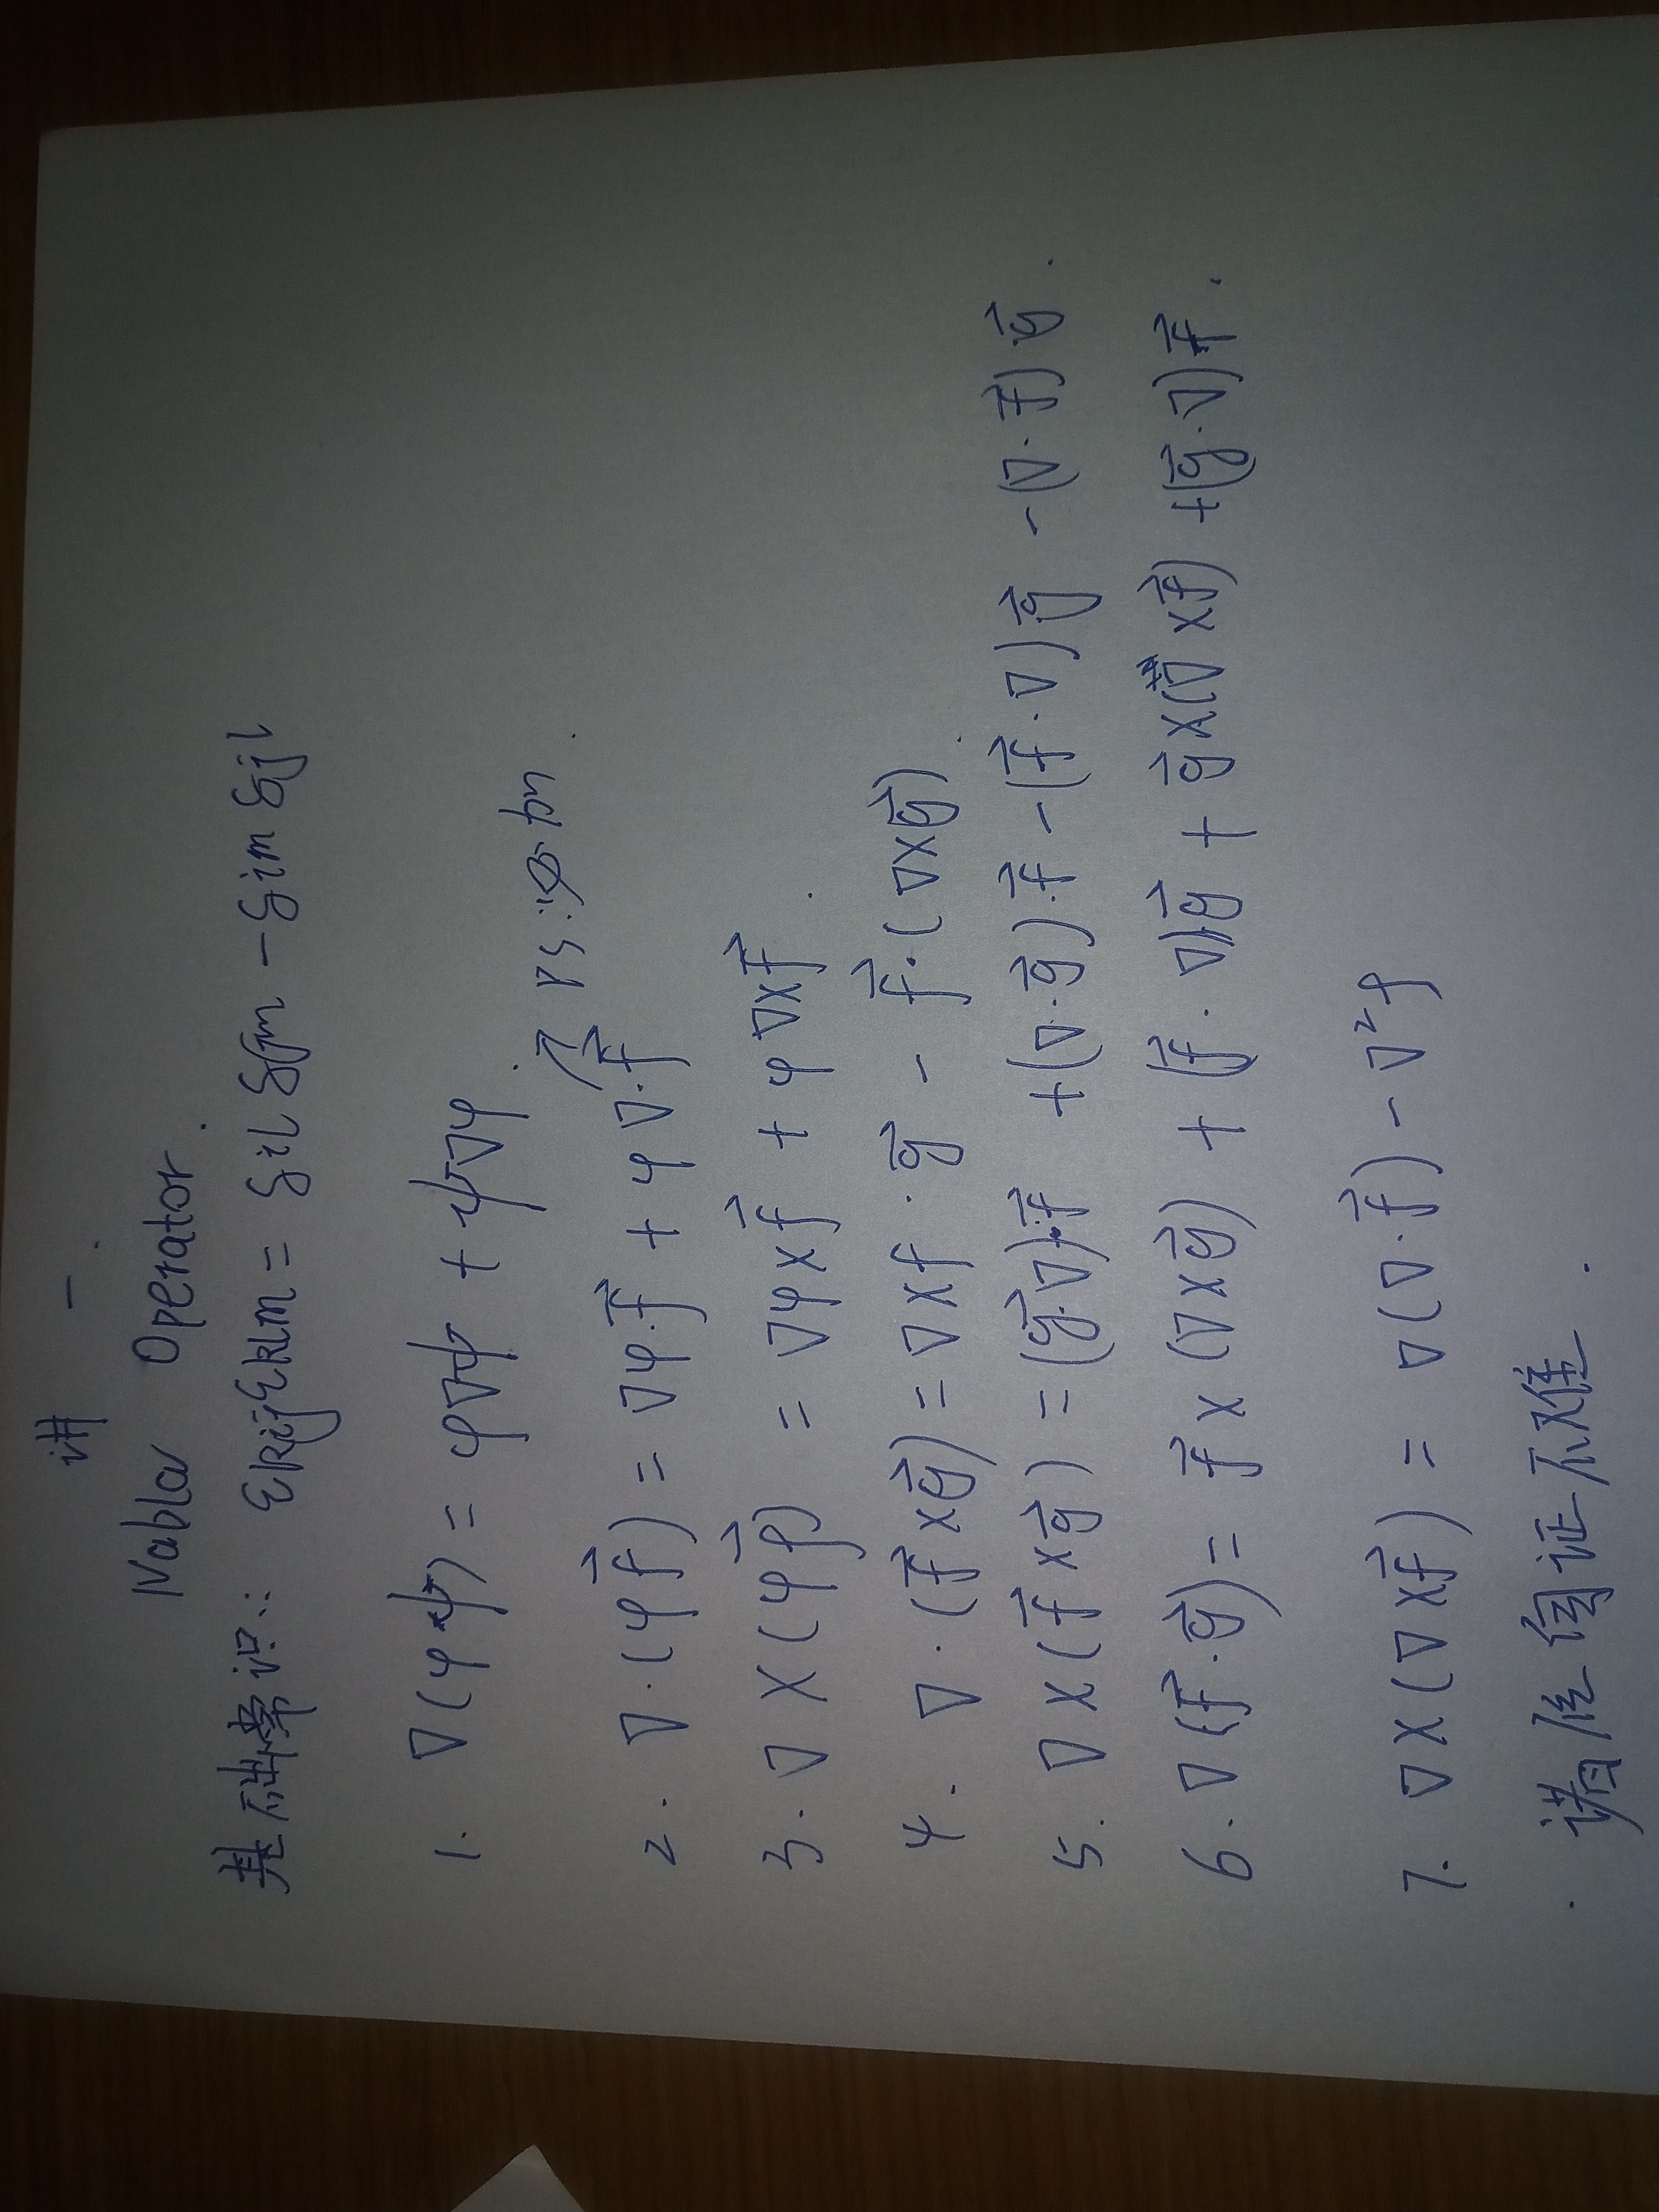 讲 一.
Nabla Operator.
基础常识: εkijεklm = δil δjm - δim δjl
1. ∇(φψ) = φ∇ψ + ψ∇φ.
2. ∇·(φf⃗) = ∇φ·f⃗ + φ∇·f⃗
PS:
3. ∇×(φf⃗) = ∇φ×f⃗ + φ∇×f⃗.
4. ∇·(f⃗×g⃗) = ∇×f·g⃗ - f⃗·(∇×g⃗).
5. ∇×(f⃗×g⃗) = (g⃗·∇)·f⃗ + (∇·g⃗)·f⃗ - (f⃗·∇)g⃗ - (∇·f⃗)·g⃗.
6. ∇(f⃗·g⃗) = f⃗×(∇×g⃗) + (f⃗·∇)g⃗ + g⃗×(∇×f⃗) + (g⃗·∇)f⃗.
7. ∇×(∇×f⃗) = ∇(∇·f⃗) - ∇²f
诸位自证不难.